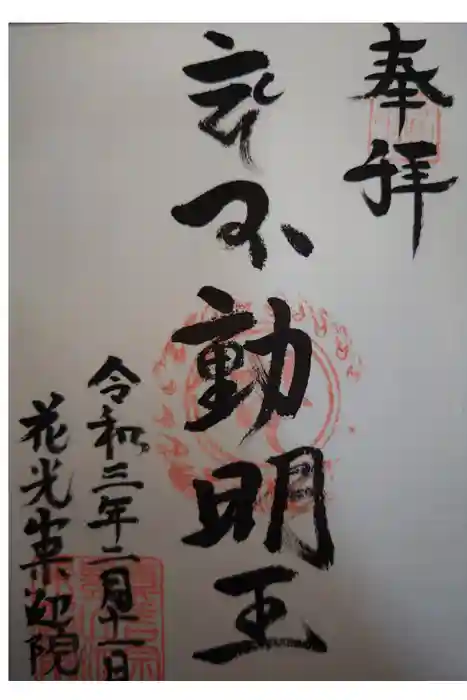 奉拝
不動明王
令和三年二月十一日
花光山来迎院